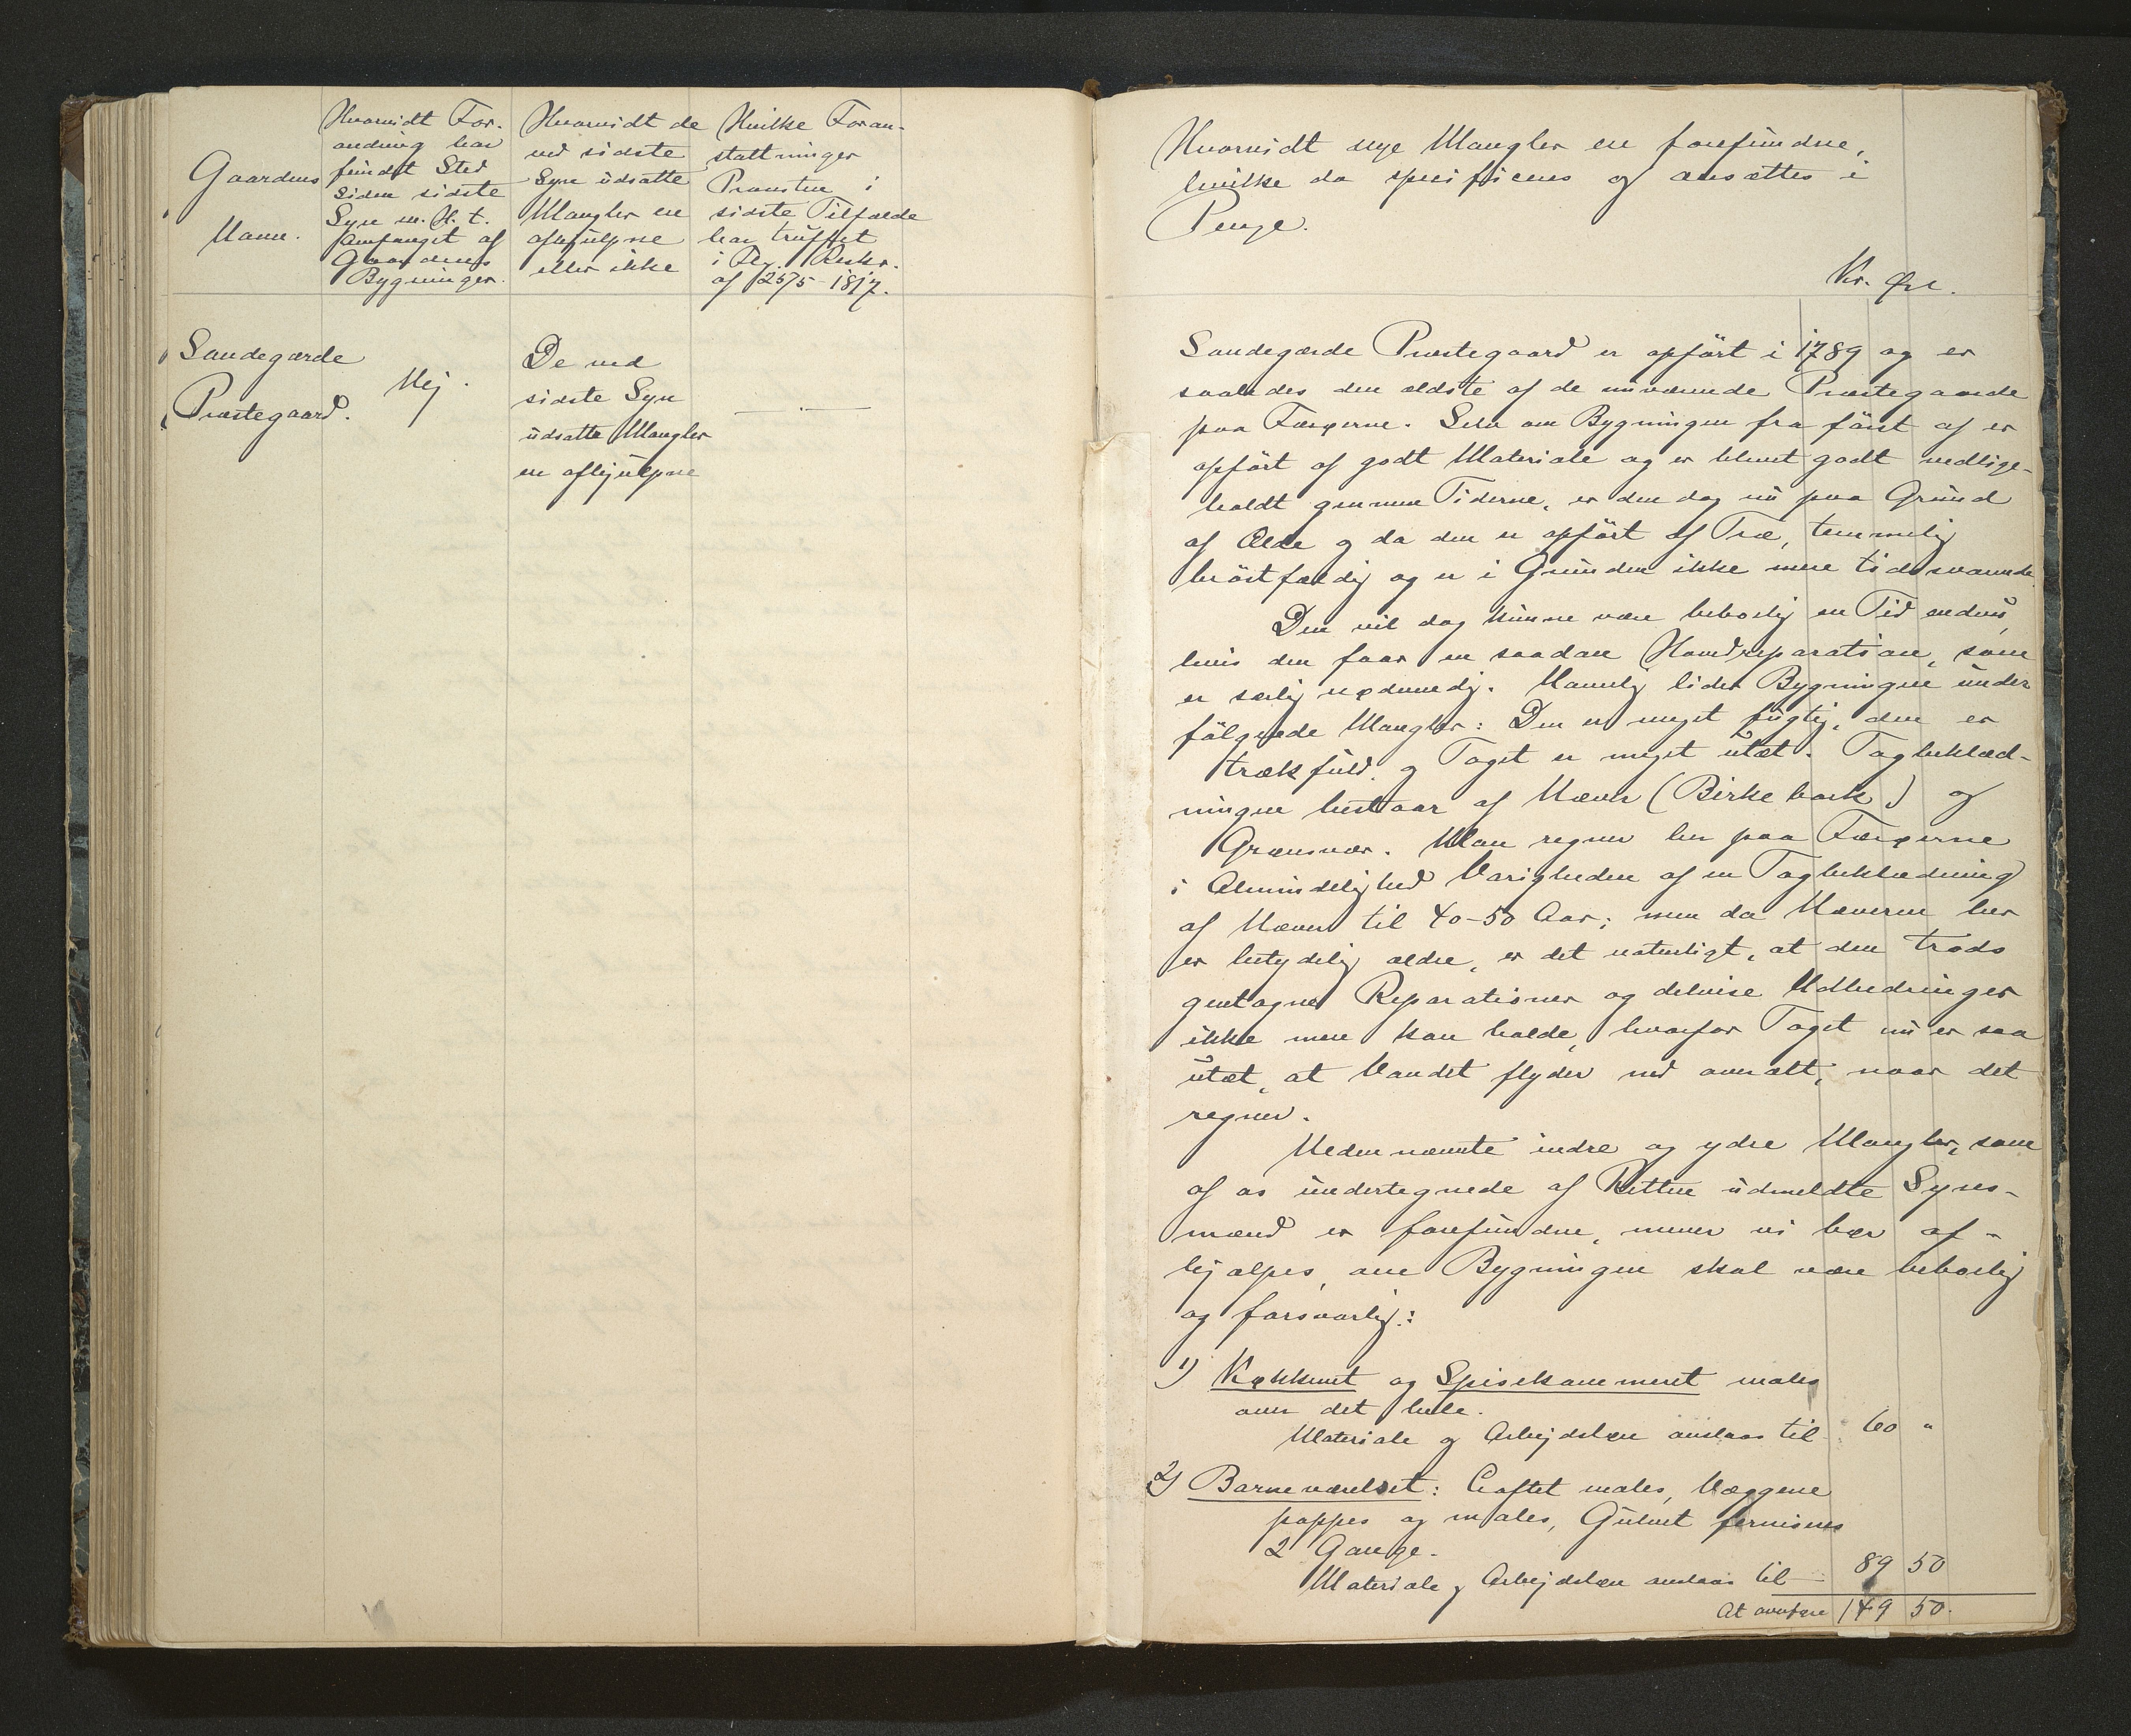 Gaardens
Navn.
Hvorvidt For-
andring har
fundet Sted
siden sidste
Syn m. H. t.
Omfanget af
Gaardens
Bygninger.
Hvorvidt de
ved sidste
Syn udsatte
Mangler ere
afhjulpne
eller ikke
Hvilke Foran-
staltninger
Provsten i
sidste Tilfælde
har truffet
i Flg. Reskr.
af 25/5 1817.
Sandegærde
Præstegaard.
Nej.
De ved
sidste Syn
udsatte Mangler
ere afhjulpne
— . —
Hvorvidt nye Mangler ere forefundne,
hvilke da specificeres og ansættes i
Penge.
Kr. Øre.
Sandegærde Præstegaard er opført i 1789 og er
saaledes den ældste af de nuværende Præstegaarde
paa Færøerne. Selv om Bygningen fra først af er
opført af godt Materiale og er blevet godt vedlige-
holdt gennem Tiderne, er den dog nu paa Grund
af Ælde og da den er opført af Træ, temmelig
brøstfældig og er i Grunden ikke mere tidssvarende.
Den vil dog kunne være beboelig en Tid endnu,
hvis den faar en saadan Hovedreparation, som
er særlig nødvendig. Navnlig lider Bygningen under
følgende Mangler: Den er meget fugtig, den er
trækfuld og Taget er meget utæt. Tagbeklæd-
ningen bestaar af Næver (Birkebark) og
Grønsvær. Man regner her paa Færøerne
i Almindelighed Varigheden af en Tagbeklædning
af Næver til 40-50 Aar; men da Næverne her
er betydelig ældre, er det naturligt, at den trods
gentagne Reparationer og delvise Udbedringer
ikke mere kan holde, hvorfor Taget nu er saa
utæt, at Vandet flyder ned overalt, naar det
regner.
Nedennævnte indre og ydre Mangler, som
af os undertegnede af Retten udmeldte Syns-
mænd er forefundne, mener vi bør af-
hjælpes, om Bygningen skal være beboelig
og forsvarlig:
1) Køkkenet og Spisekammeret males
over det hele.
Materiale og Arbejdsløn anslaas til 60 "
2) Barneværelset: Loftet males, Væggene
pappes og males, Gulvet ferniseres
2 Gange.
Materiale og Arbejdsløn anslaas til 89 50
At overføre 149 50.